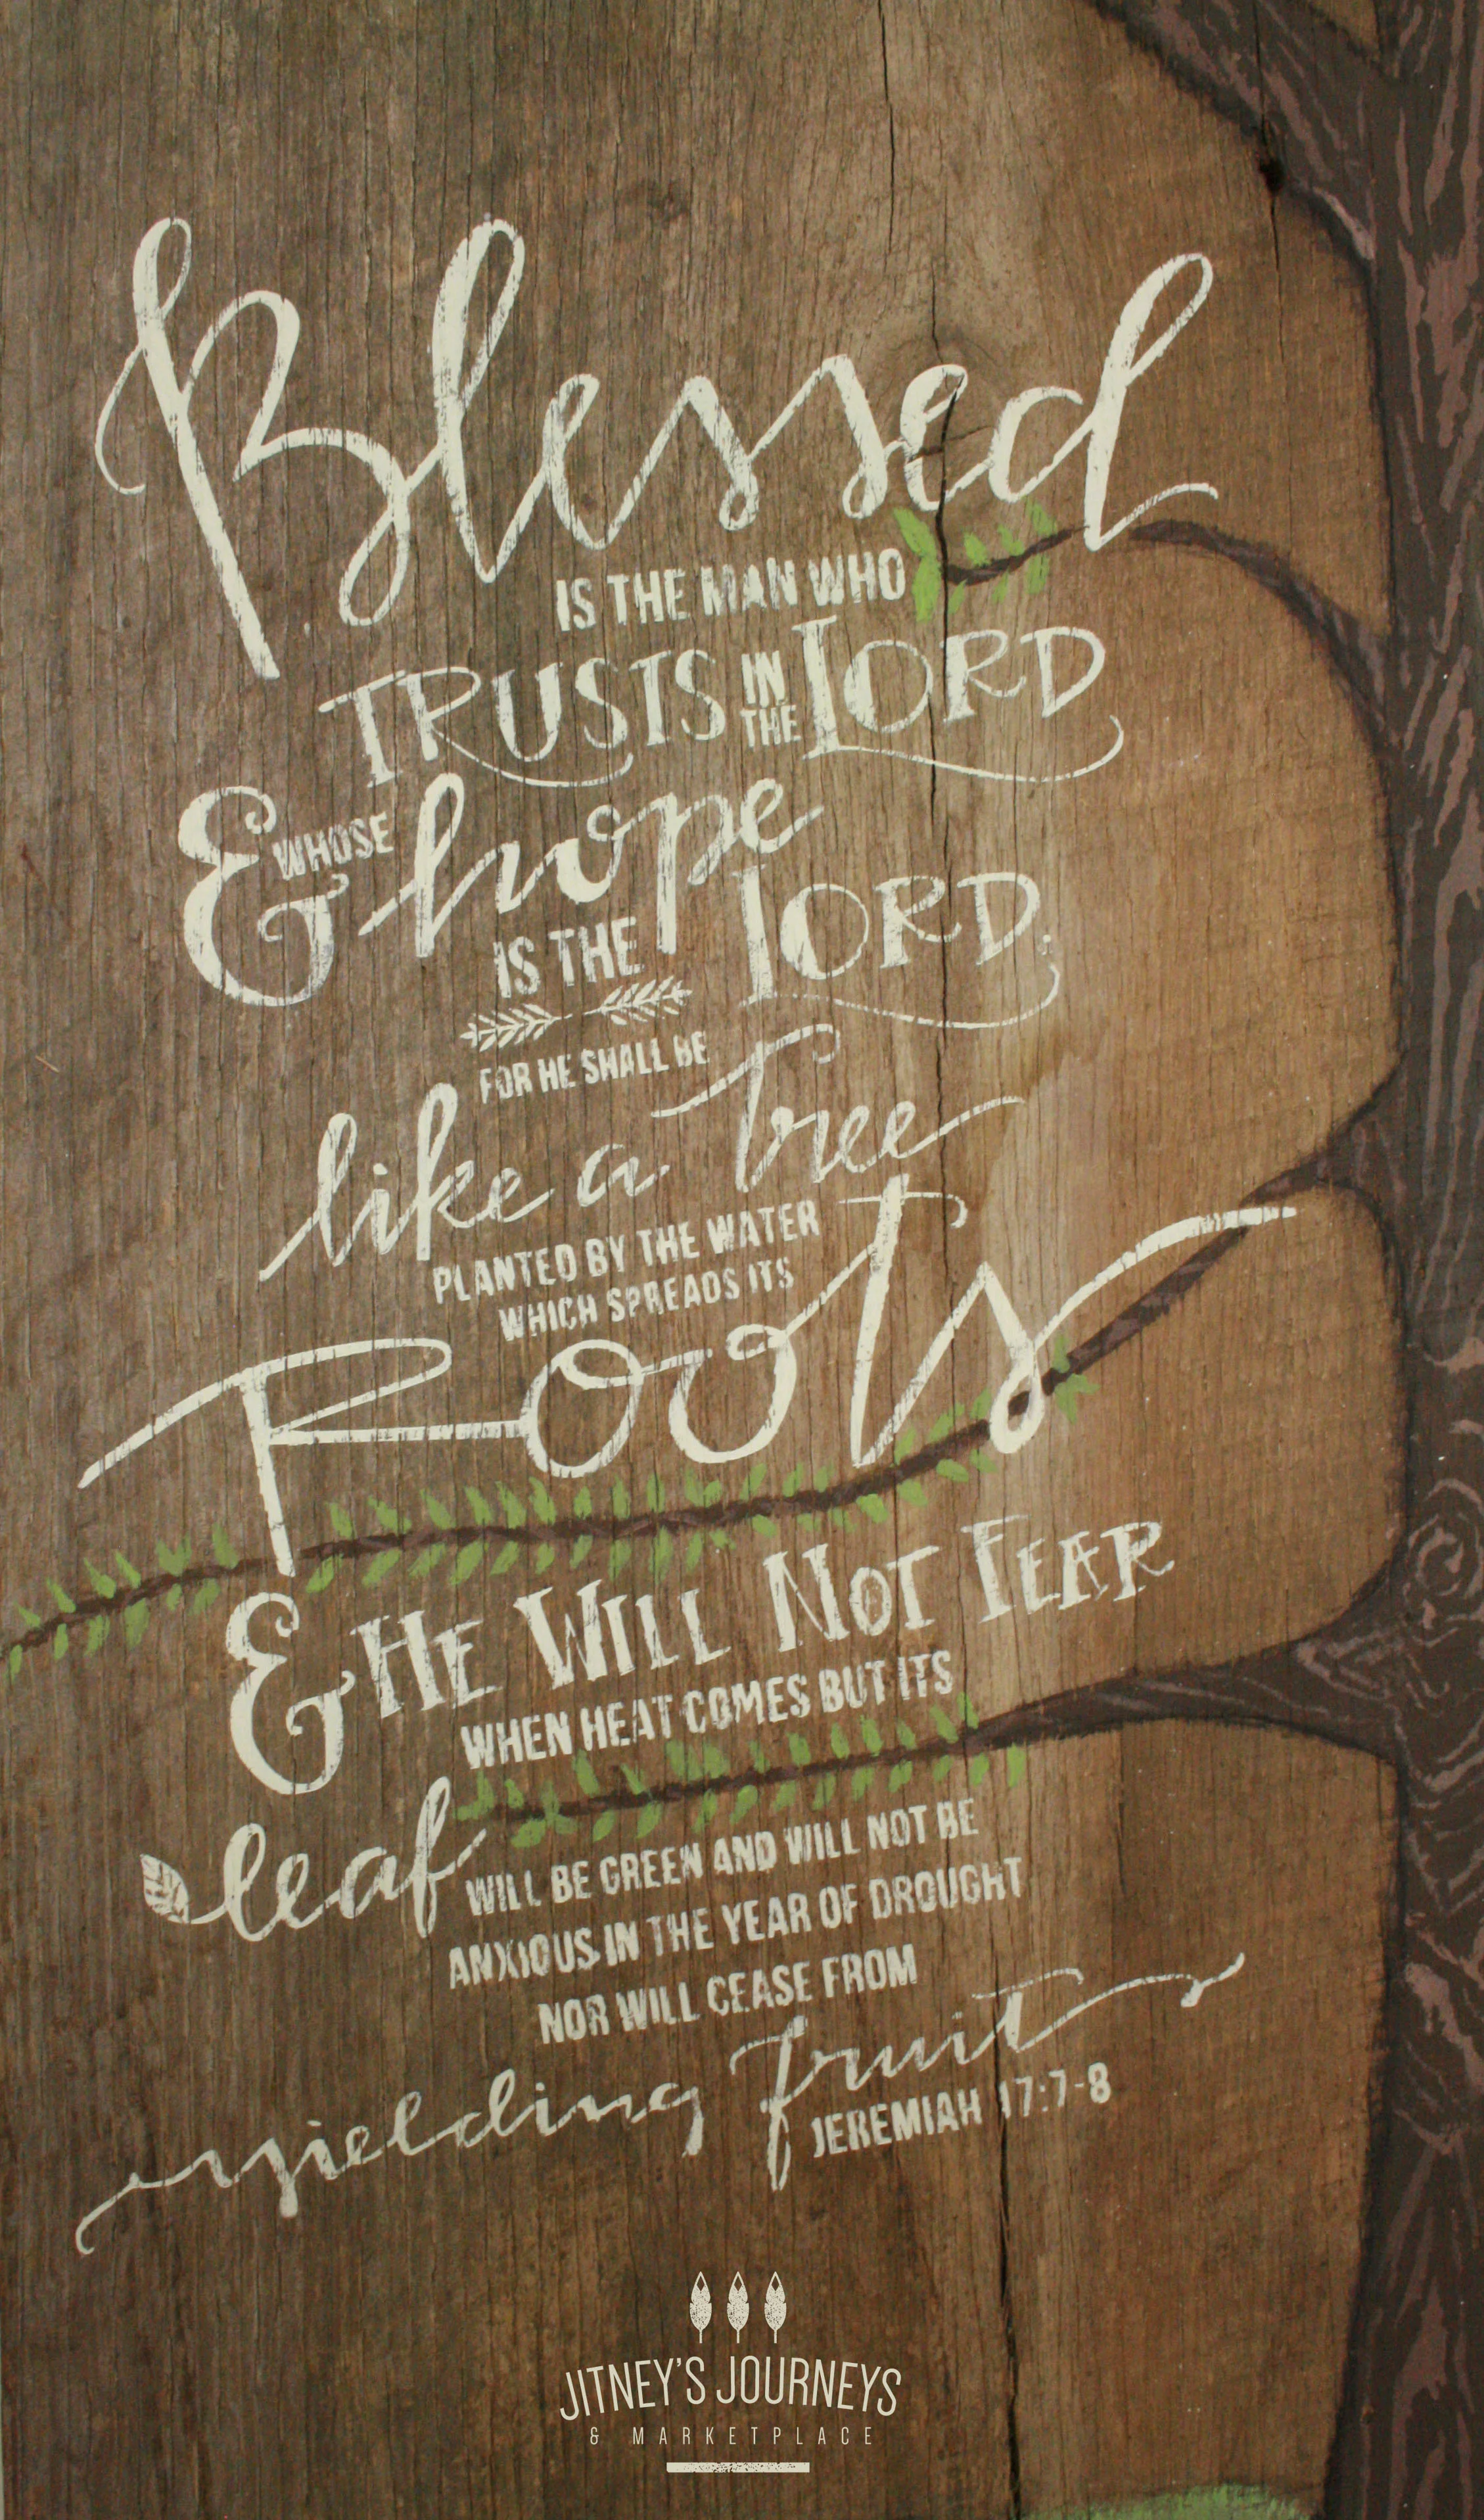 Blessed
IS THE MAN WHO
TRUSTS IN THE LORD
& WHOSE hope
IS THE LORD.
FOR HE SHALL BE
like a Tree
PLANTED BY THE WATER
WHICH SPREADS ITS
Roots
& HE WILL NOT FEAR
WHEN HEAT COMES BUT ITS
leaf WILL BE GREEN AND WILL NOT BE
ANXIOUS IN THE YEAR OF DROUGHT
NOR WILL CEASE FROM
yielding fruit
JEREMIAH 17:7-8
JITNEY'S JOURNEYS
& MARKETPLACE